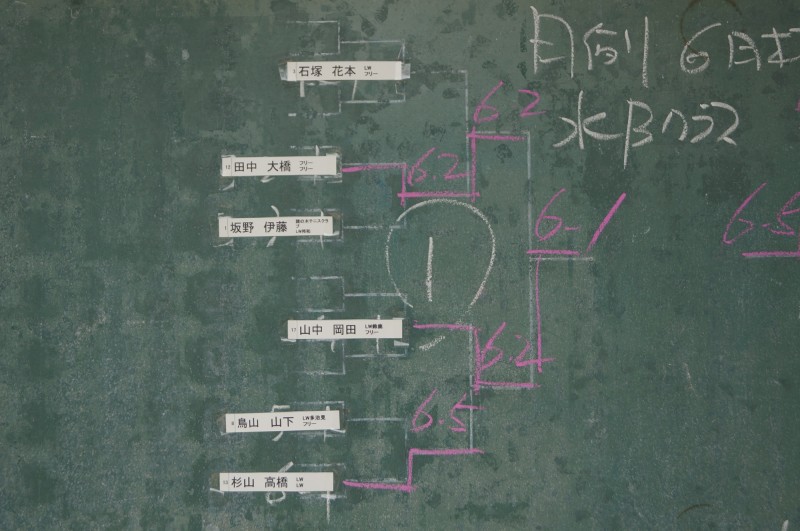 月例 6日本
水Bクラス
石塚 花本 LW フリー
6-2
田中 大橋 フリー フリー
6-2
坂野 伊藤
6-1
6-5
1
17 山中 岡田 LW フリー
6-2
鳥山 山下 LW多治見 フリー
6-5
杉山 高橋 LW LW